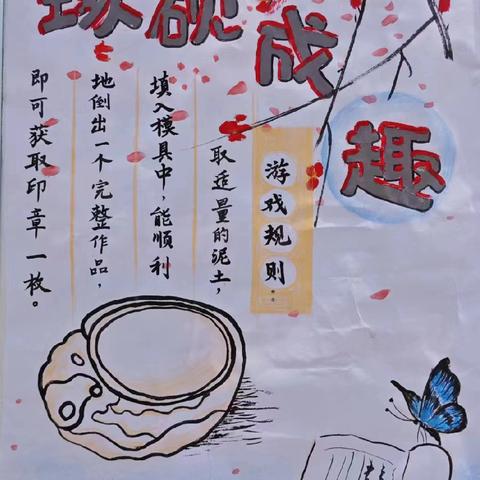 琢砚成趣
游戏规则：
取适量的泥土，
填入模具中，能顺利
地倒出一个完整作品，
即可获取印章一枚。